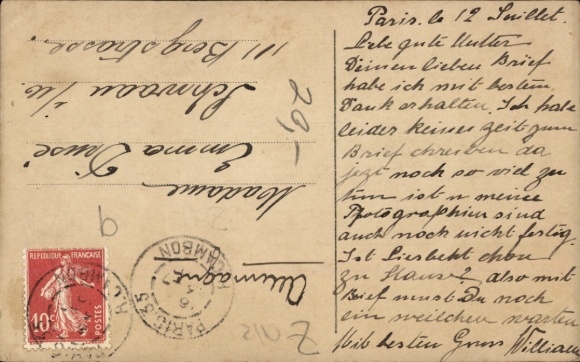 Paris. le 12 Juillet.
Liebe gute Mutter
Deinen lieben Brief
habe ich mit bestem
Dank erhalten. Ich habe
leider keines zeit zum
Brief chreiben da
jezt noch so viel zu
tun ist u meine
Photographien sind
auch noch nicht fertig.
Ist Liesbeht chon
zu Hause? also mit
Brief must Du noch
ein weilchen warten
Mit besten Gruss William
Madame
Emma
Schwaan i/M
111 Bergstrasse.
Allemagne
29,-
9
REPUBLIQUE FRANÇAISE
10c
POSTES
PARIS